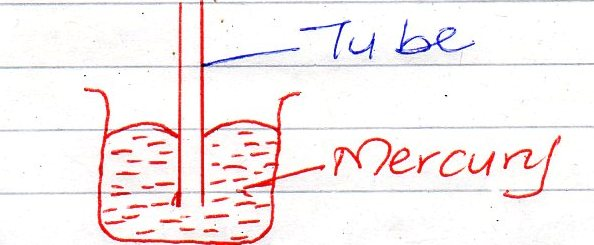 Tube
Mercury